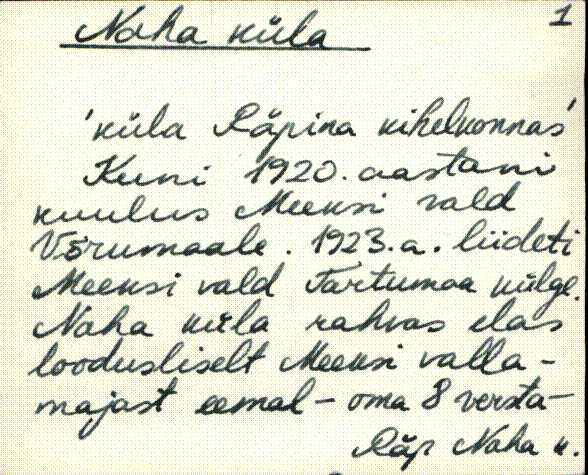 1
Naha küla
'küla Räpina kihelkonnas'
Kuni 1920. aastani
kuulus Meeksi vald
Võrumaale. 1923. a. liideti
Meeksi vald Tartumaa külge.
Naha küla rahvas elas
loodusliselt Meeksi valla-
majast eemal - oma 8 versta -
Räp Naha k.